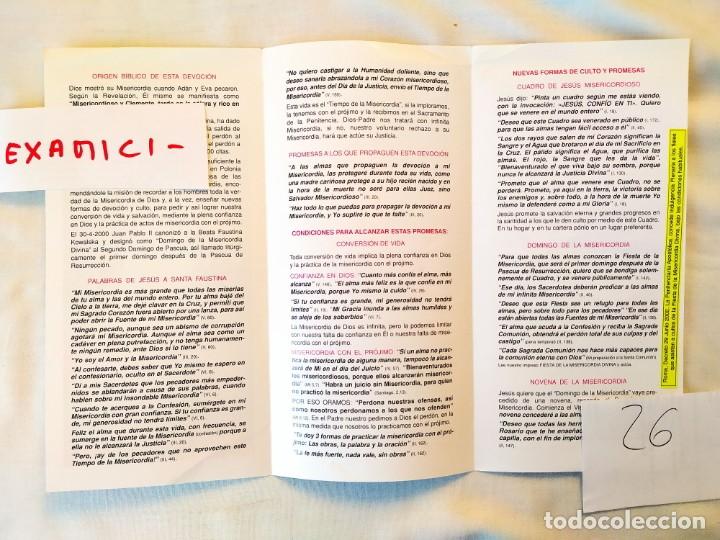 ORIGEN BÍBLICO DE ESTA DEVOCIÓN
Dios mostró su Misericordia cuando Adán y Eva pecaron.
Según la Revelación, Él mismo se manifiesta como
"Misericordioso y Clemente, tardo en la cólera y rico en
, ha dado
perdón al
00 citas.
suficiente la
en Polonia
osa de las
ordia, enco-
mendándole la misión de recordar a los hombres toda la ver-
dad de la Misericordia de Dios y, a la vez, enseñar nuevas
formas de devoción y culto, para pedir y así lograr nuestra
conversión de vida y salvación, mediante la plena confianza
en Dios y la práctica de actos de misericordia con el prójimo.
El 30-4-2000 Juan Pablo II canonizó a la Beata Faustina
Kowalska y designó como "Domingo de la Misericordia
Divina" al Segundo Domingo de Pascua, así llamado litúrgi-
camente el primer domingo después de la Pascua de
Resurrección.
PALABRAS DE JESÚS A SANTA FAUSTINA
"Mi Misericordia es más grande que todas las miserias
de tu alma y las del mundo entero. Por tu alma bajé del
Cielo a la tierra, me dejé clavar en la Cruz, y permití que
mi Sagrado Corazón fuera abierto por una lanza, para así
poder abrir la Fuente de mi Misericordia"
"Ningún pecado, aunque sea un abismo de corrupción
agotará mi Misericordia. Aunque el alma sea como un
cadáver en plena putrefacción, y no tenga humanamen-
te ningún remedio, ante Dios sí lo tiene"
"Yo soy el Amor y la Misericordia"
"Al confesarte, debes saber que Yo mismo te espero en
el confesonario, oculto en el Sacerdote"
"Di a mis Sacerdotes que los pecadores más empeder-
nidos se ablandarán a causa de sus palabras, cuando
hablen sobre mi insondable Misericordia"
"Cuando te acerques a la Confesión, sumérgete en mi
Misericordia con gran confianza. Si el alma es grande
de, mi generosidad no tendrá límites"
Feliz el alma que durante esta vida, con frecuencia, se
sumerge en la fuente de la Misericordia porque a
ella no la alcanzará la Justicia"
"Pero, ¡ay de los pecadores que no aprovechen este
Tiempo de la Misericordia!"
"No quiero castigar a la Humanidad doliente, sino que
deseo sanarla abrazándola a mi Corazón misericordioso,
por eso, antes del Día de la Justicia, envío el Tiempo de la
Misericordia"
Esta vida es el "Tiempo de la Misericordia", si la imploramos,
la tenemos con el prójimo y la recibimos en el Sacramento de
la Penitencia, Dios-Padre nos tratará con infinita
Misericordia, si no, nuestro voluntario rechazo a su
Misericordia, hará que actúe su Justicia.
PROMESAS A LOS QUE PROPAGUEN ESTA DEVOCIÓN
"A las almas que propaguen la devoción a mi
Misericordia, las protegeré durante toda su vida, como
una madre cariñosa protege a su hijo recién nacido y en
la hora de la muerte no seré para ellas Juez, sino
Salvador Misericordioso"
"Haz todo lo que puedas para propagar la devoción a mi
Misericordia, y Yo supliré lo que te falte"
CONDICIONES PARA ALCANZAR ESTAS PROMESAS:
CONVERSIÓN DE VIDA
Toda conversión de vida implica la plena confianza en Dios
y la práctica de la misericordia con el prójimo.
CONFIANZA EN DIOS: "Cuanto más confíe el alma, más
alcanza" "El alma más feliz es la que confía en mi
Misericordia"
"Si tu confianza es grande, mi generosidad no tendrá
límites" "Mi Gracia inunda a las almas humildes y
se aleja de los soberbios"
La Misericordia de Dios es infinita, pero la podemos limitar
con nuestra falta de confianza en Él o nuestra falta de miseri-
cordia con el prójimo.
MISERICORDIA CON EL PRÓJIMO "Si un alma no prac-
tica la misericordia de alguna manera, tampoco la alcan-
zará de Mí en el día del Juicio" "Bienaventurados
los misericordiosos, porque ellos alcanzarán misericor-
dia" "Habrá un juicio sin Misericordia, para quien
no practicó la misericordia"
POR ESO ORAMOS: "Perdona nuestras ofensas, así
como nosotros perdonamos a los que nos ofenden"
En el Padre nuestro pedimos a Dios el perdón, en la
misma medida que nosotros lo practicamos con el prójimo.
"Te doy 3 formas de practicar la misericordia con el pró-
jimo: Las obras, la palabra y la oración"
"La fe más fuerte, nada vale, sin obras"
NUEVAS FORMAS DE CULTO Y PROMESAS
CUADRO DE JESÚS MISERICORDIOSO
Jesús dijo: "Pinta un cuadro según me estás viendo,
con la invocación: «JESÚS, CONFÍO EN TI». Quiero
que se venere en el mundo entero"
"Deseo que este Cuadro sea venerado en público
para que las almas tengan fácil acceso a él"
"Los dos rayos que salen de mi Corazón significan la
Sangre y el Agua que brotaron el día de mi Sacrificio en
la Cruz. El pálido significa el Agua, que purifica las
almas. El rojo, la Sangre que les da la vida".
"Bienaventurado el que viva bajo su sombra, porque
nunca le alcanzará la Justicia Divina"
"Prometo que el alma que venere ese Cuadro, no se
perderá. Prometo, ya aquí en la tierra, la victoria sobre
los enemigos y, sobre todo, a la hora de la muerte Yo
mismo la defenderé como a mi Gloria"
Jesús promete la salvación eterna y grandes progresos en
la santidad a los que le den culto por medio de este Cuadro.
En tu hogar y en tu cartera pónlo en un lugar preferente.
DOMINGO DE LA MISERICORDIA
"Para que todas las almas conozcan la Fiesta de la
Misericordia, que será el primer domingo después de la
Pascua de Resurrección, quiero que se bendiga solem-
nemente el Cuadro, y se venere públicamente"
"Ese día, los Sacerdotes deberán predicar a las almas
de mi infinita Misericordia"
"Deseo que esta Fiesta sea un refugio para todas las
almas, pero sobre todo para los pecadores" "En ese día
están abiertas todas las Fuentes de mi Misericordia"
"El alma que acuda a la Confesión y reciba la Sagrada
Comunión, obtendrá el perdón total de sus culpas y del
castigo"
"Cada Sagrada Comunión nos hace más capaces para
la comunión eterna con Dios"
NOVENA DE LA MISERICORDIA
Jesús quiere que el "Domingo de la Misericordia" vaya pre-
cedido de una novena,
Misericordia. Comienza el V
novena concederé a las alm
"Deseo que todas las her
Rosario que te he enseña
capilla, con el fin de impla
Roma, Decreto 29 Junio 2002: La Penitenciaría Apostólica, concede Indulgencia Plenaria a los fieles
que asistan a cultos de la Fiesta de la Misericordia Divina, bajo las condiciones habituales
EXAMICI-
26
todocoleccion